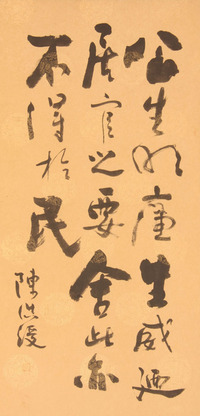 公生明廉生威廼
居官之要舍此亦
不得於民
陳